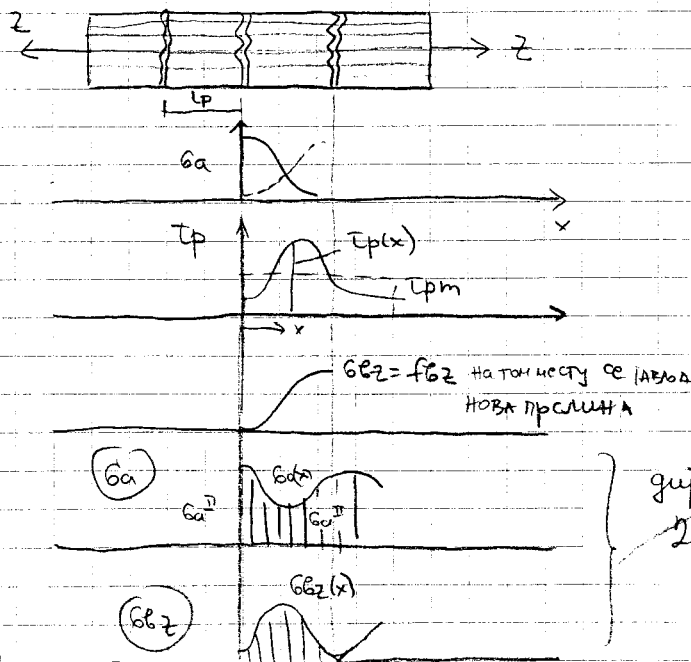 Z Z
lp
σa
x
τp
τp(x)
τpm
x
σbz = fbz на том месту се јавља
нова прслина
σa
σa(x)
σa^II σa^II
σbz(x)
σbz